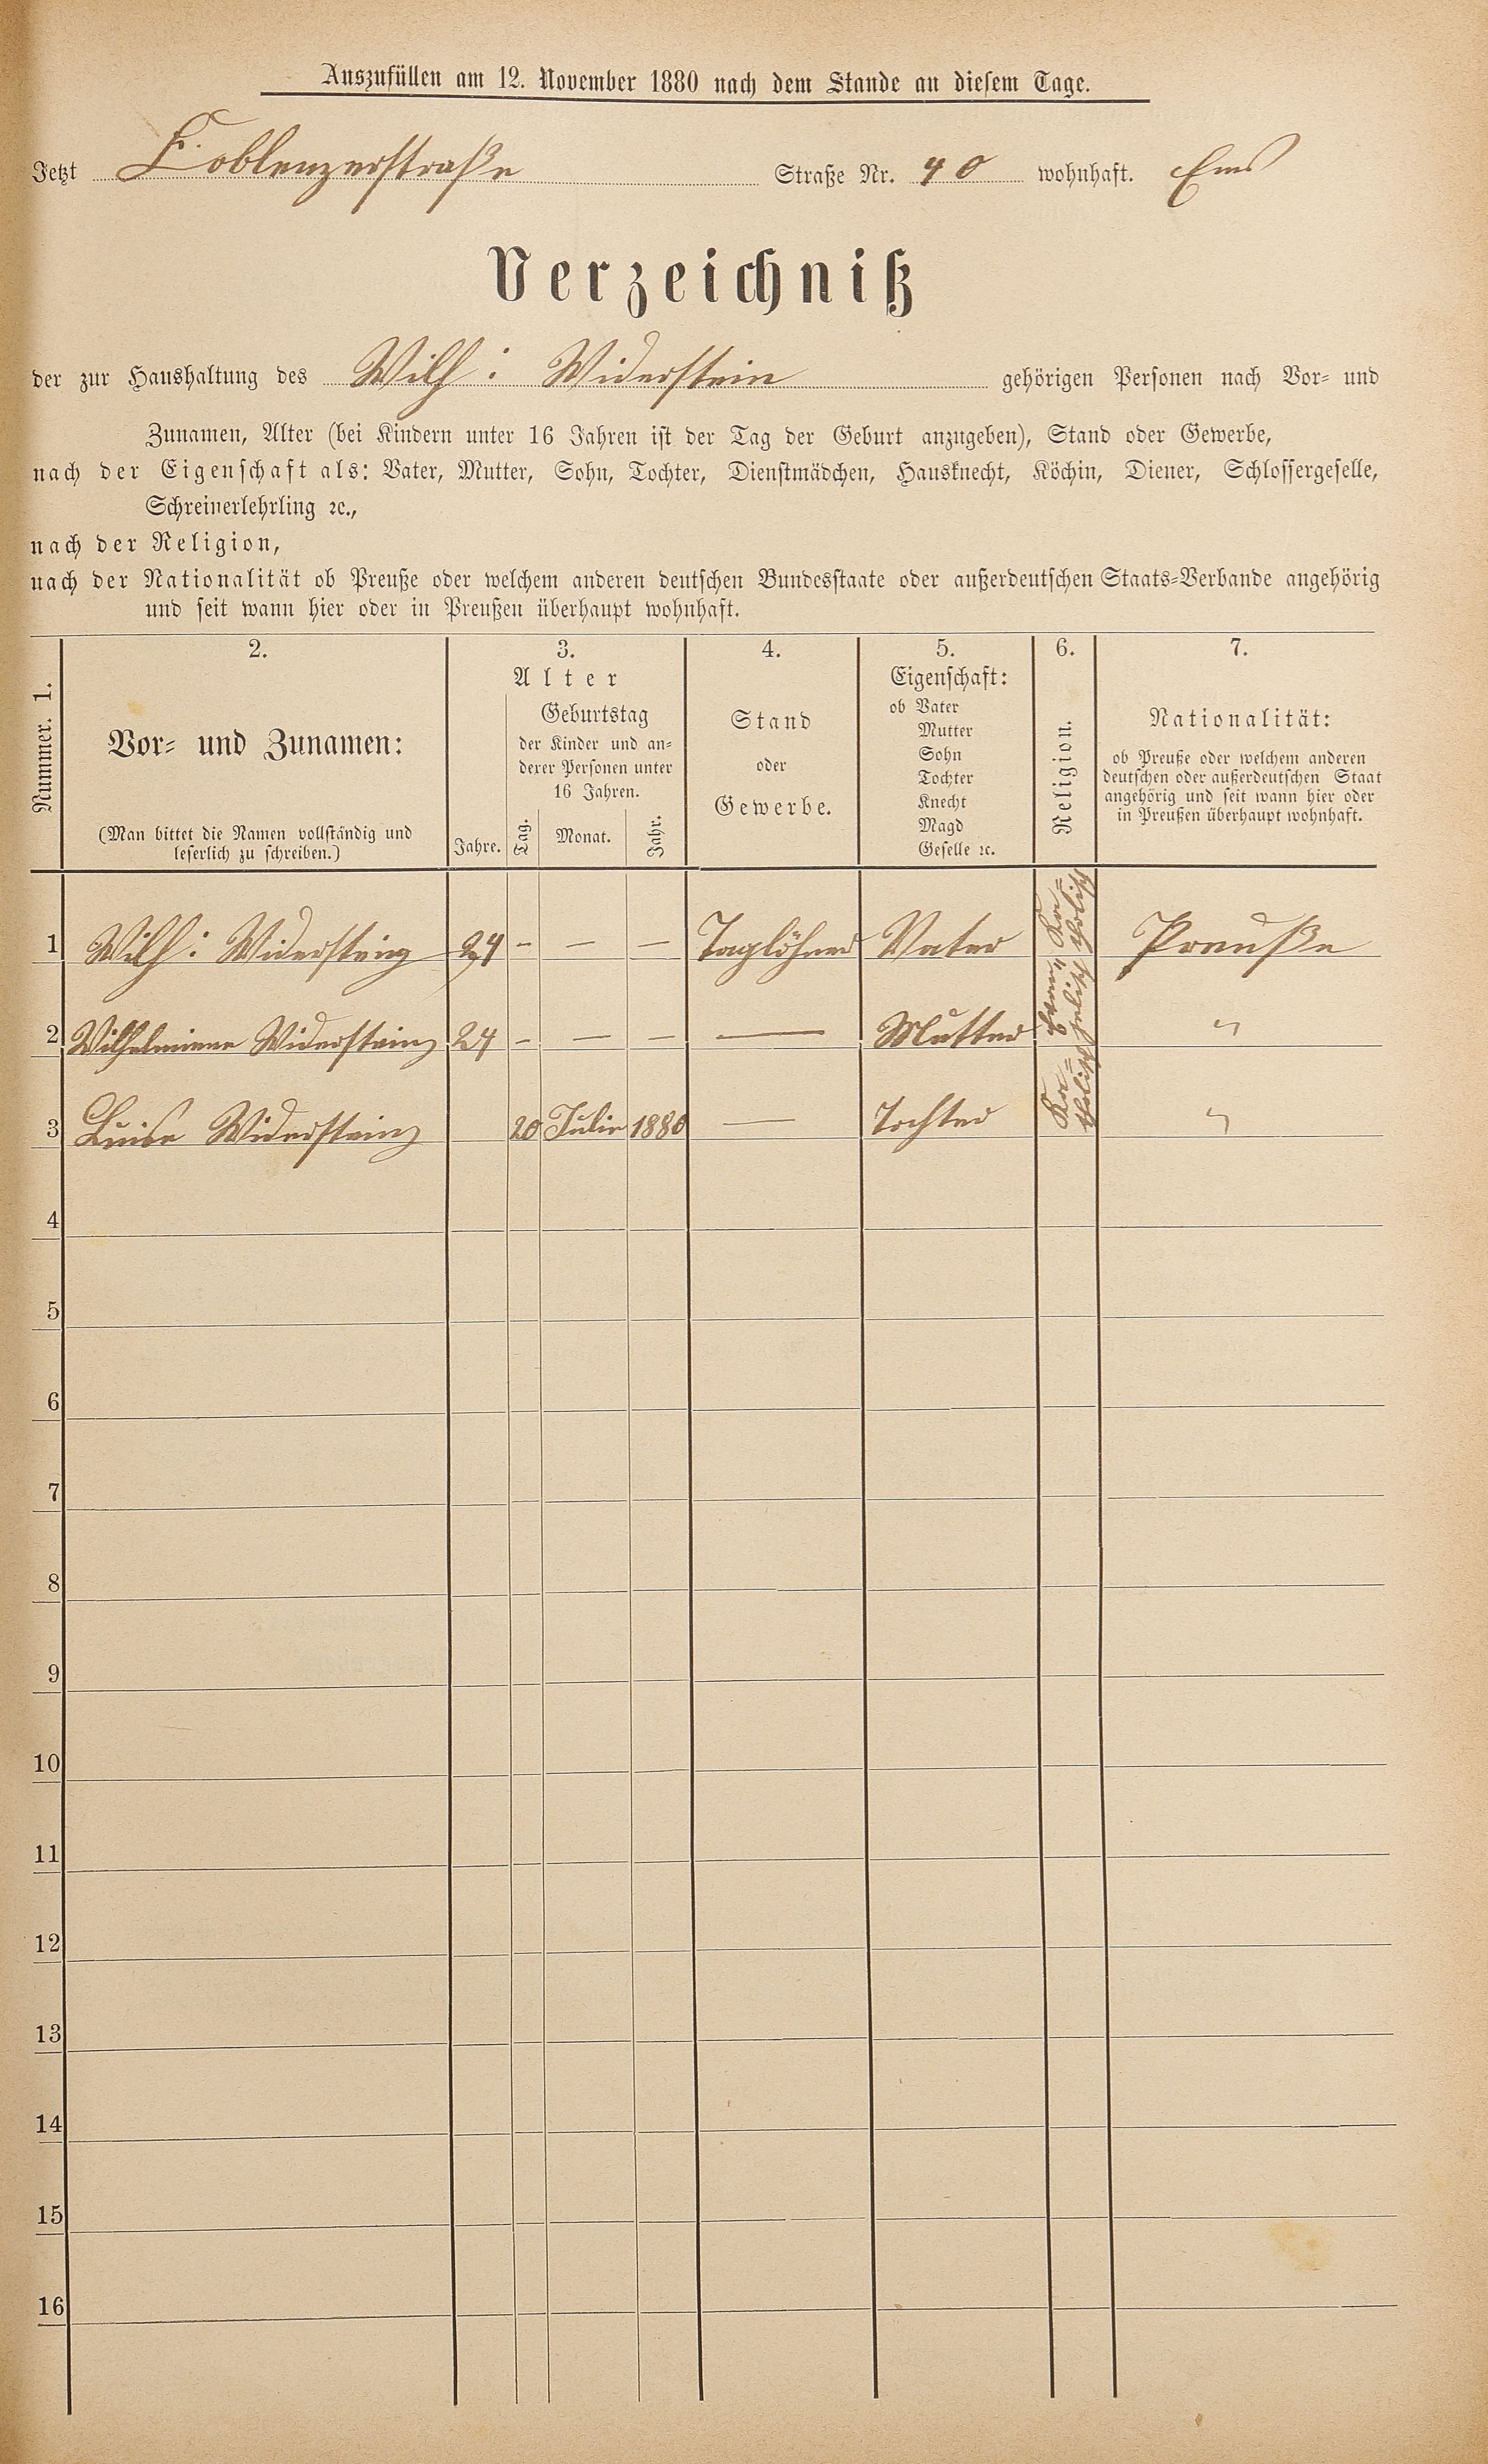 Auszufüllen am 12. November 1880 nach dem Stande an diesem Tage.
Jetzt Koblenzerstraße Straße Nr. 40 wohnhaft. Ems
Verzeichniß
der zur Haushaltung des Wilh: Widerstein gehörigen Personen nach Vor- und
Zunamen, Alter (bei Kindern unter 16 Jahren ist der Tag der Geburt anzugeben), Stand oder Gewerbe,
nach der Eigenschaft als: Vater, Mutter, Sohn, Tochter, Dienstmädchen, Hausknecht, Köchin, Diener, Schlossergeselle,
Schreinerlehrling ꝛc.,
nach der Religion,
nach der Nationalität ob Preuße oder welchem anderen deutschen Bundesstaate oder außerdeutschen Staats-Verbande angehörig
und seit wann hier oder in Preußen überhaupt wohnhaft.
Nummer. 1.
2.
Vor- und Zunamen:
(Man bittet die Namen vollständig und
leserlich zu schreiben.)
3.
Alter
Jahre.
Geburtstag
der Kinder und an-
derer Personen unter
16 Jahren.
Tag. Monat. Jahr.
4.
Stand
oder
Gewerbe.
5.
Eigenschaft:
ob Vater
Mutter
Sohn
Tochter
Knecht
Magd
Geselle ꝛc.
6.
Religion.
7.
Nationalität:
ob Preuße oder welchem anderen
deutschen oder außerdeutschen Staat
angehörig und seit wann hier oder
in Preußen überhaupt wohnhaft.
1 Wilh: Widerstein 24 – – – Taglöhner Vater Ka=tholisch Preuße
2 Wilhelmine Widerstein 24 – – – — Mutter Evan=gelisch "
3 Luise Widerstein 20 Julie 1880 — Tochter Ka=tholisch "
4
5
6
7
8
9
10
11
12
13
14
15
16